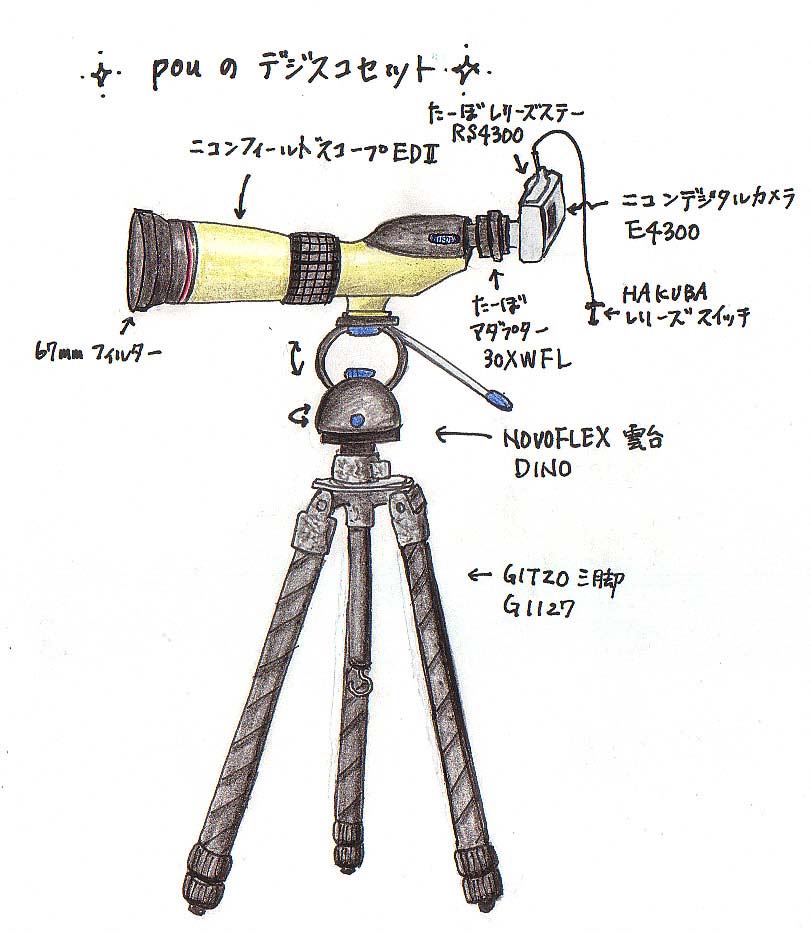 pou の デジスコセット
たーぼレリーズステー
RS4300
ニコンフィールドスコープEDⅡ
ニコンデジタルカメラ
E4300
HAKUBA
レリーズスイッチ
たーぼ
アダプター
30XWFL
67mm フィルター
NOVOFLEX 雲台
DINO
GITZO 三脚
G1127